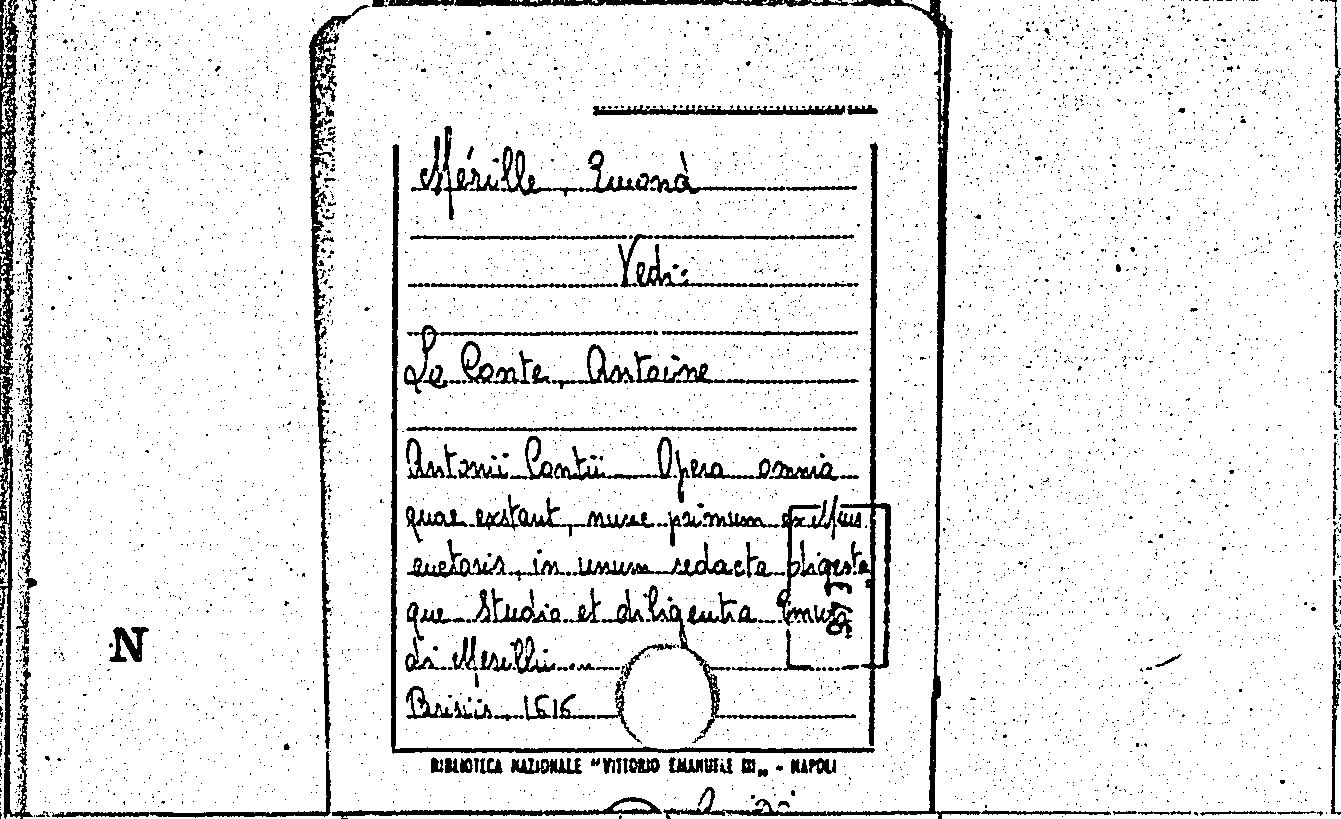 Mérille, Emond
Vedi:
Le Conte, Antoine
Antonii Contii Opera omnia
quae exstant, nunc primum
in unum redacta digesta
que studio et diligentia Emun
di Merillii ...
Parisiis, 1616
N
BIBLIOTECA NAZIONALE "VITTORIO EMANUELE III„ - NAPOLI